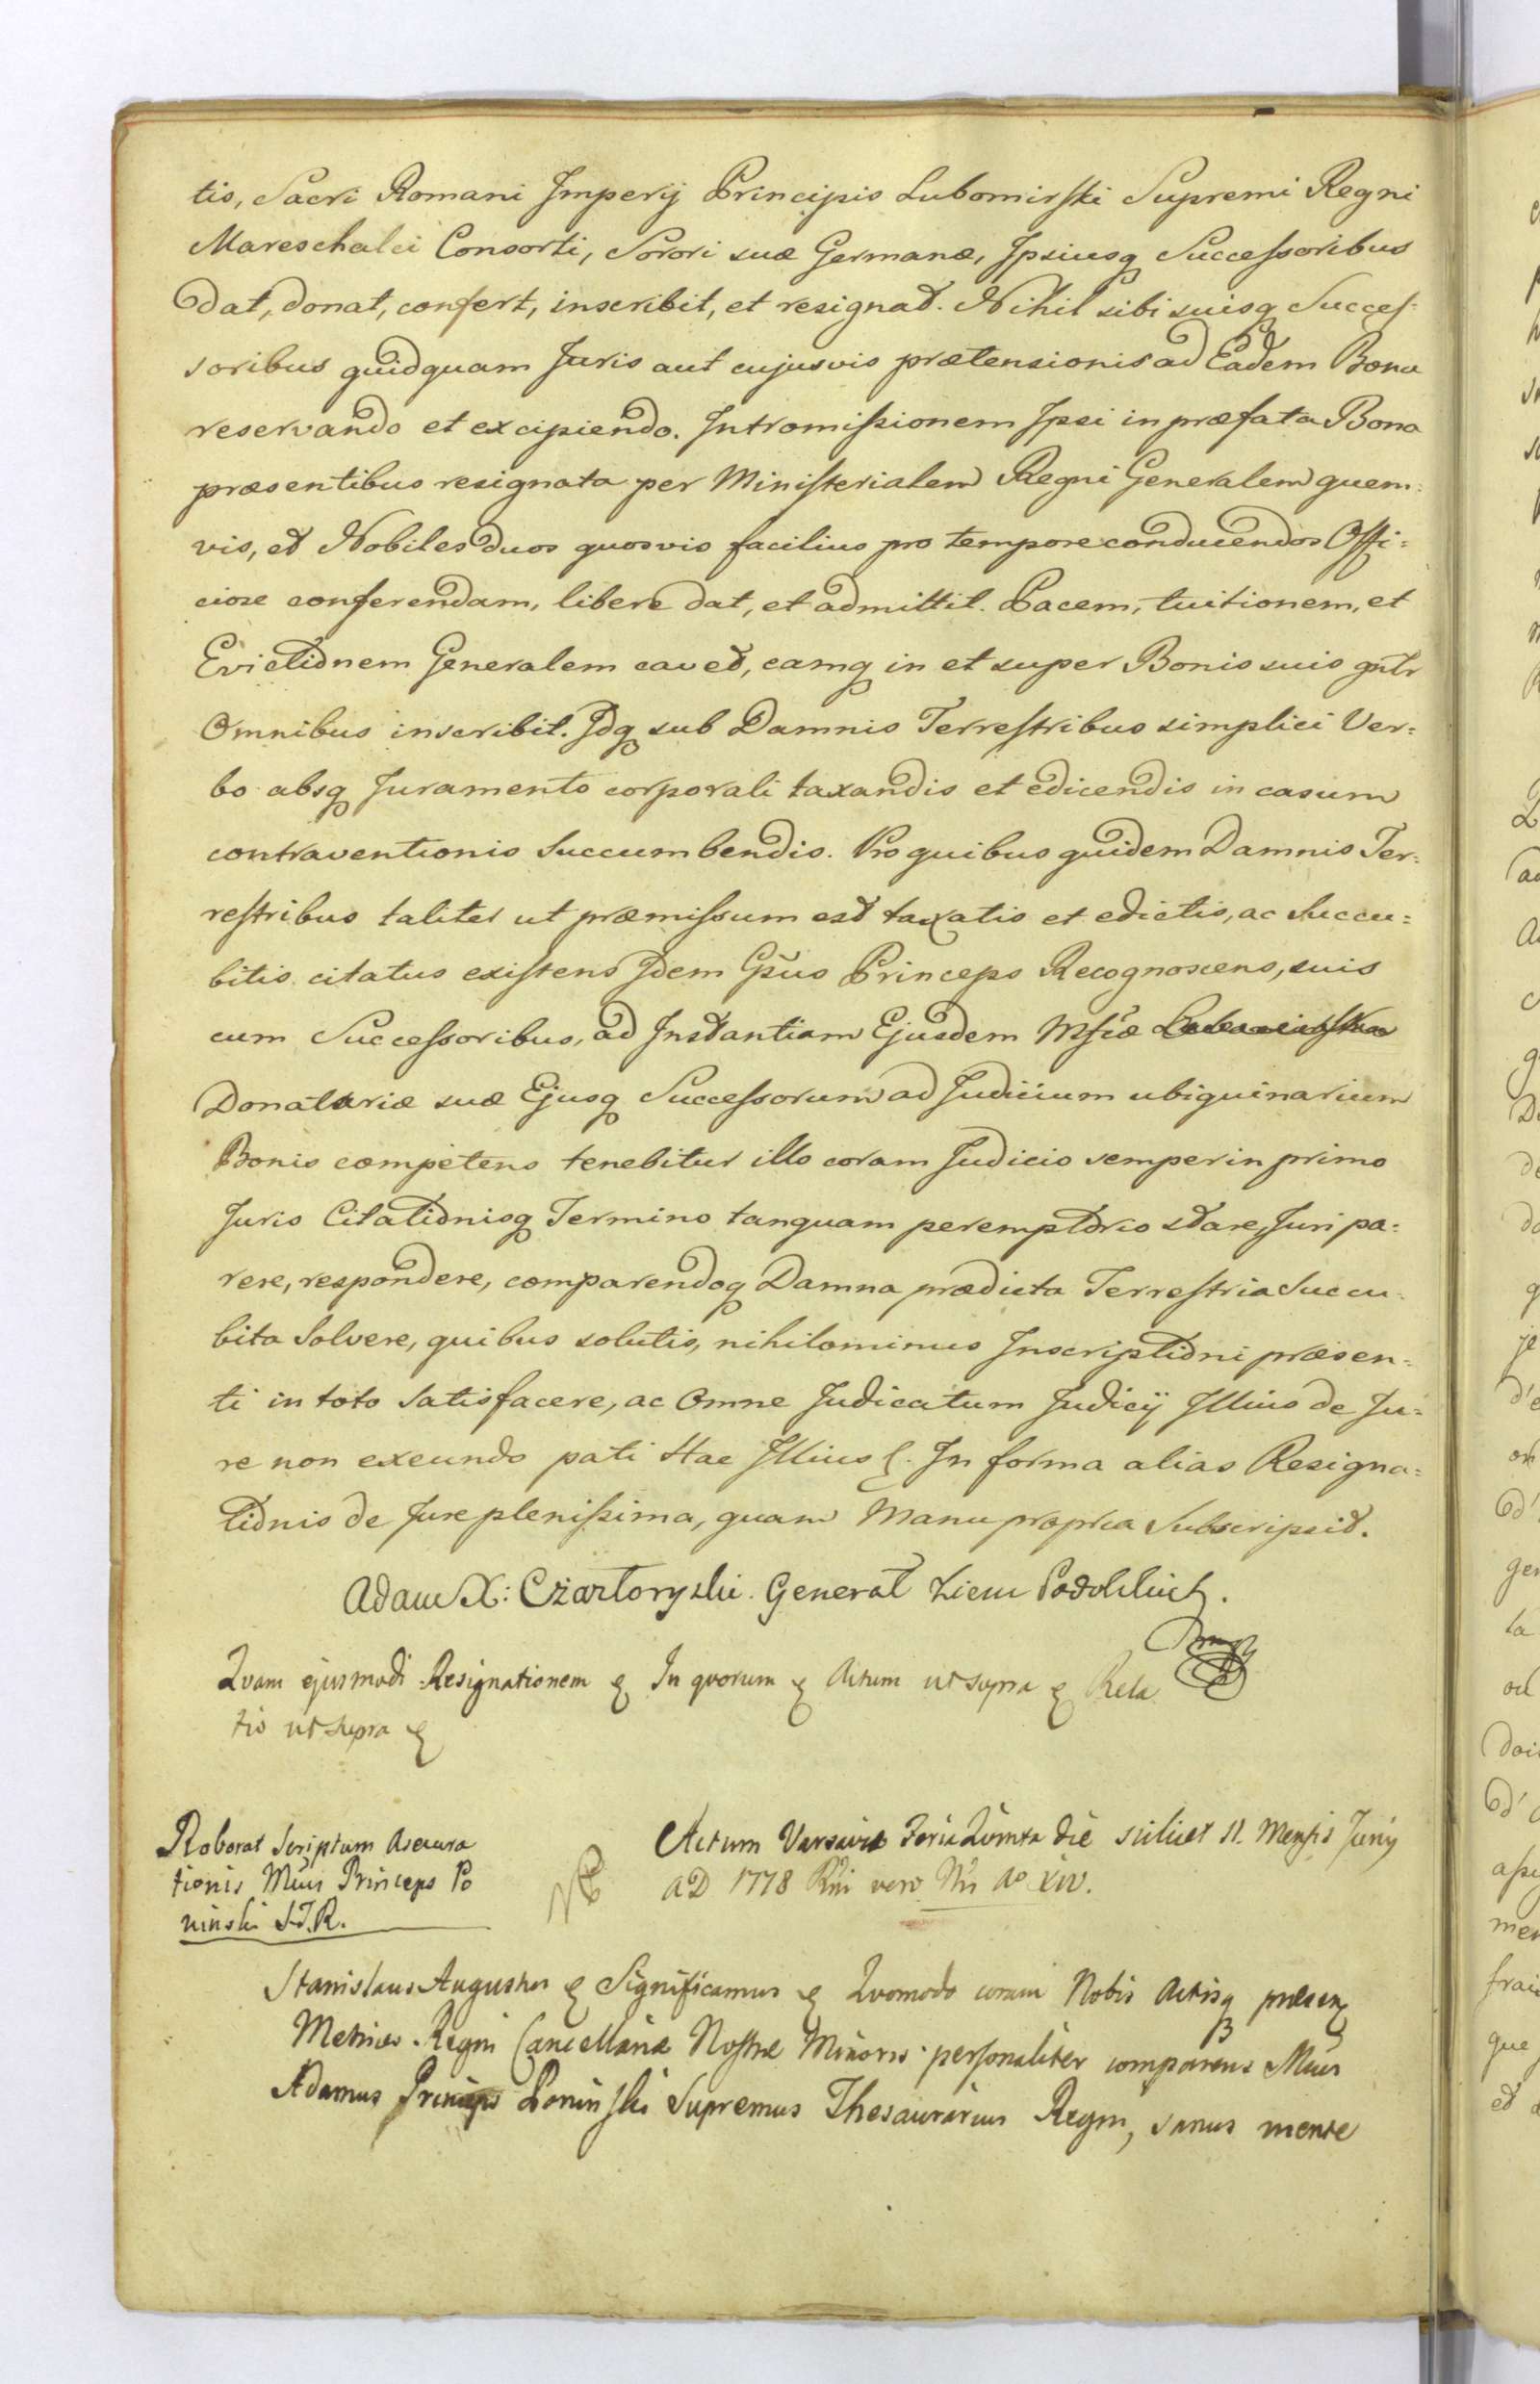 tis, Sacri Romani Imperij Principis Lubomirski Supremi Regni
Mareschalci Consorti, Sorori suæ Germanæ, Ipsiusq Successoribus
dat, donat, confert, inscribit, et resignat. Nihil sibi suisq Succes=
soribus quidquam Juris aut cujusvis prætensionis ad Eadem Bona
reservando et excipiendo. Intromissionem Ipsi in præfata Bona
præsentibus resignata per Ministerialem Regni Generalem quem=
vis, et Nobiles duos quosvis facilius pro tempore conducendos Offi=
ciose conferendam, libere dat, et admittit. Pacem, tuitionem, et
Evictionem Generalem cavet, eamq in et super Bonis suis gntr
Omnibus inscribit. Idq sub Damnis Terrestribus simplici Ver=
bo absq Juramento corporali taxandis et edicendis in casum
contraventionis succumbendis. Pro quibus quidem Damnis Ter=
restribus taliter ut præmissum est taxatis et edictis, ac succu=
bitis citatus existens Idem Gsus Princeps Recognoscens, suis
cum Successoribus, ad Instantiam Ejusdem Msicæ
Donatariæ suæ Ejusq Successorum ad Judicium ubiquinarium
Bonis competens tenebitur illo coram Judicio semper in primo
Juris Citationisq Termino tanquam peremptorio stare, Juri pa=
rere, respondere, comparendoq Damna prædicta Terrestria succu=
bita solvere, quibus solutis, nihilominus Inscriptioni præsen=
ti in toto satisfacere, ac Omne Judicatum Judicij Illius de Ju=
re non exeundo pati Hac Illius. In forma alias Resigna=
tionis de Jure plenissima, quam Manu propria Subscripsit.
Adam X: Czartoryski. Generał Ziem Podolskich.
Quam ejusmodi Resignationem & In quorum & Actum ut supra & Rela
tio ut supra &
Roborat Scriptum Assecura
tionis Mcus Princeps Po
ninski S.T.R.
Actum Varsaviæ Feria Quinta die scilicet 11. Mensis Junij
AD 1778 Rni vero Nri Ao XIV.
Stanislaus Augustus & Significamus & Quomodo coram Nobis Actisq præsen
Metrices Regni Cancellariæ Nostræ Minoris personaliter comparens Mcus
Adamus Princeps Poninski Supremus Thesaurarius Regni, sanus mente